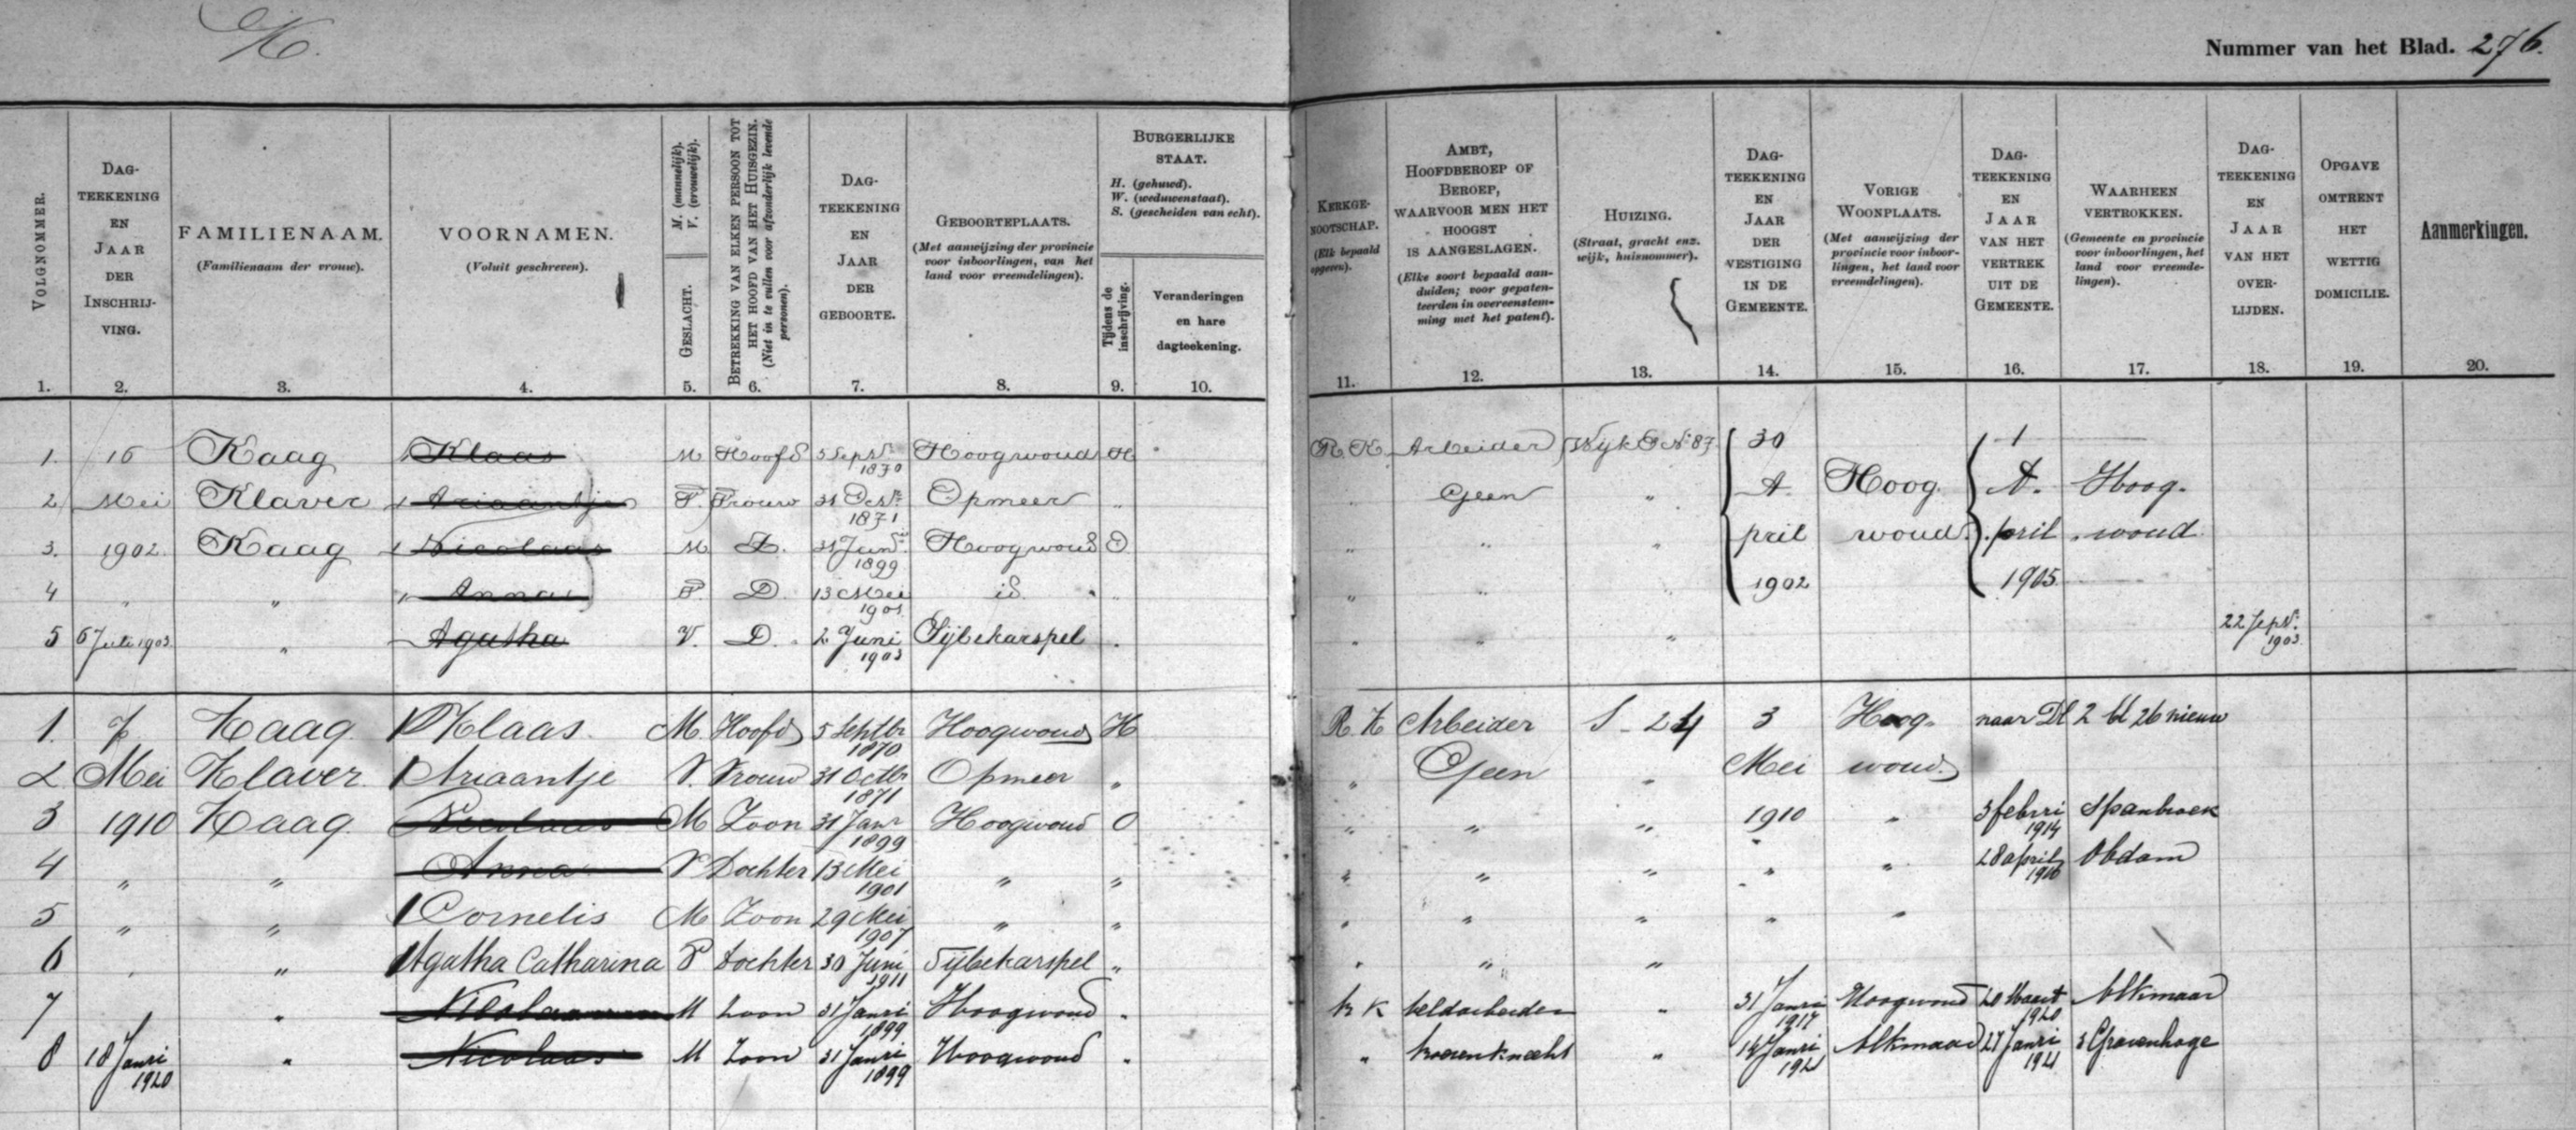 K.
Nummer van het Blad. 276.
VOLGNOMMER.
DAG-
TEEKENING
EN
JAAR
DER
INSCHRIJ-
VING.
FAMILIENAAM.
(Familienaam der vrouw).
VOORNAMEN.
(Voluit geschreven).
M. (mannelijk).
V. (vrouwelijk).
GESLACHT.
BETREKKING VAN ELKEN PERSOON TOT
HET HOOFD VAN HET HUISGEZIN.
(Niet in te vullen voor afzonderlijk levende
personen).
DAG-
TEEKENING
EN
JAAR
DER
GEBOORTE.
GEBOORTEPLAATS.
(Met aanwijzing der provincie
voor inboorlingen, van het
land voor vreemdelingen).
BURGERLIJKE
STAAT.
H. (gehuwd).
W. (weduwenstaat).
S. (gescheiden van echt).
Tijdens de
inschrijving.
Veranderingen
en hare
dagteekening.
KERKGE-
NOOTSCHAP.
(Elk bepaald
opgeven).
AMBT,
HOOFDBEROEP OF
BEROEP,
WAARVOOR MEN HET
HOOGST
IS AANGESLAGEN.
(Elke soort bepaald aan-
duiden; voor gepaten-
teerden in overeenstem-
ming met het patent).
HUIZING.
(Straat, gracht enz.
wijk, huisnommer).
DAG-
TEEKENING
EN
JAAR
DER
VESTIGING
IN DE
GEMEENTE.
VORIGE
WOONPLAATS.
(Met aanwijzing der
provincie voor inboor-
lingen, het land voor
vreemdelingen).
DAG-
TEEKENING
EN
JAAR
VAN HET
VERTREK
UIT DE
GEMEENTE.
WAARHEEN
VERTROKKEN.
(Gemeente en provincie
voor inboorlingen, het
land voor vreemde-
lingen).
DAG-
TEEKENING
EN
JAAR
VAN HET
OVER-
LIJDEN.
OPGAVE
OMTRENT
HET
WETTIG
DOMICILIE.
Aanmerkingen.
1. 2. 3. 4. 5. 6. 7. 8. 9. 10. 11. 12. 13. 14. 15. 16. 17. 18. 19. 20.
1. 16 Kaag Klaas M Hoofd 5 Septr 1870 Hoogwoud H R. K. Arbeider Wijk No 87 30 1
2 Mei Klaver Ariaantje V. Vrouw 31 Octr 1871 Opmeer " " Geen " A. Hoog. A. Hoog-
3. 1902. Kaag Nicolaas M Z. 31 1899 Hoogwoud O " " " pril woud. pril woud
4 " " Anna V. D. 13 Mei 1901 id. " " " " 1902 1905
5 6 Juli 1903. " Agatha V. D. 2 Juni 1903 Sijbekarspel " " " " 22 Septr. 1903.
1. 7 Kaag Klaas M. Hoofd 5 Septbr 1870 Hoogwoud H R. K Arbeider S - 24 3 Hoog- naar Dl 2 bl 26 nieuw
2 Mei Klaver Ariaantje V. Vrouw 31 Octbr 1871 Opmeer " " Geen " Mei woud.
3 1910 Kaag Nicolaas M Zoon 31 Janr 1899 Hoogwoud O " " " 1910 " 3 febrri 1914 Spanbroek
4 " " Anna V Dochter 13 Mei 1901 " " " " " " " 28 april Obdam
5 " " Cornelis M Zoon 29 Mei 1907 " " " " " " "
6 " " Agatha Catharina V Dochter 30 Juni 1911 Sijbekarspel " " " "
7 " M Zoon 31 Janri 1899 Hoogwoud " R K Veldarbeider " 31 Janri 1917 Hoogwoud 20 Maart 1920 Alkmaar
8 18 Janri 1920 " Nicolaas M Zoon 31 Janri 1899 Hoogwoud " " boerenknecht " 14 Janri Alkmaar 27 Janri 1921 s Gravenhage